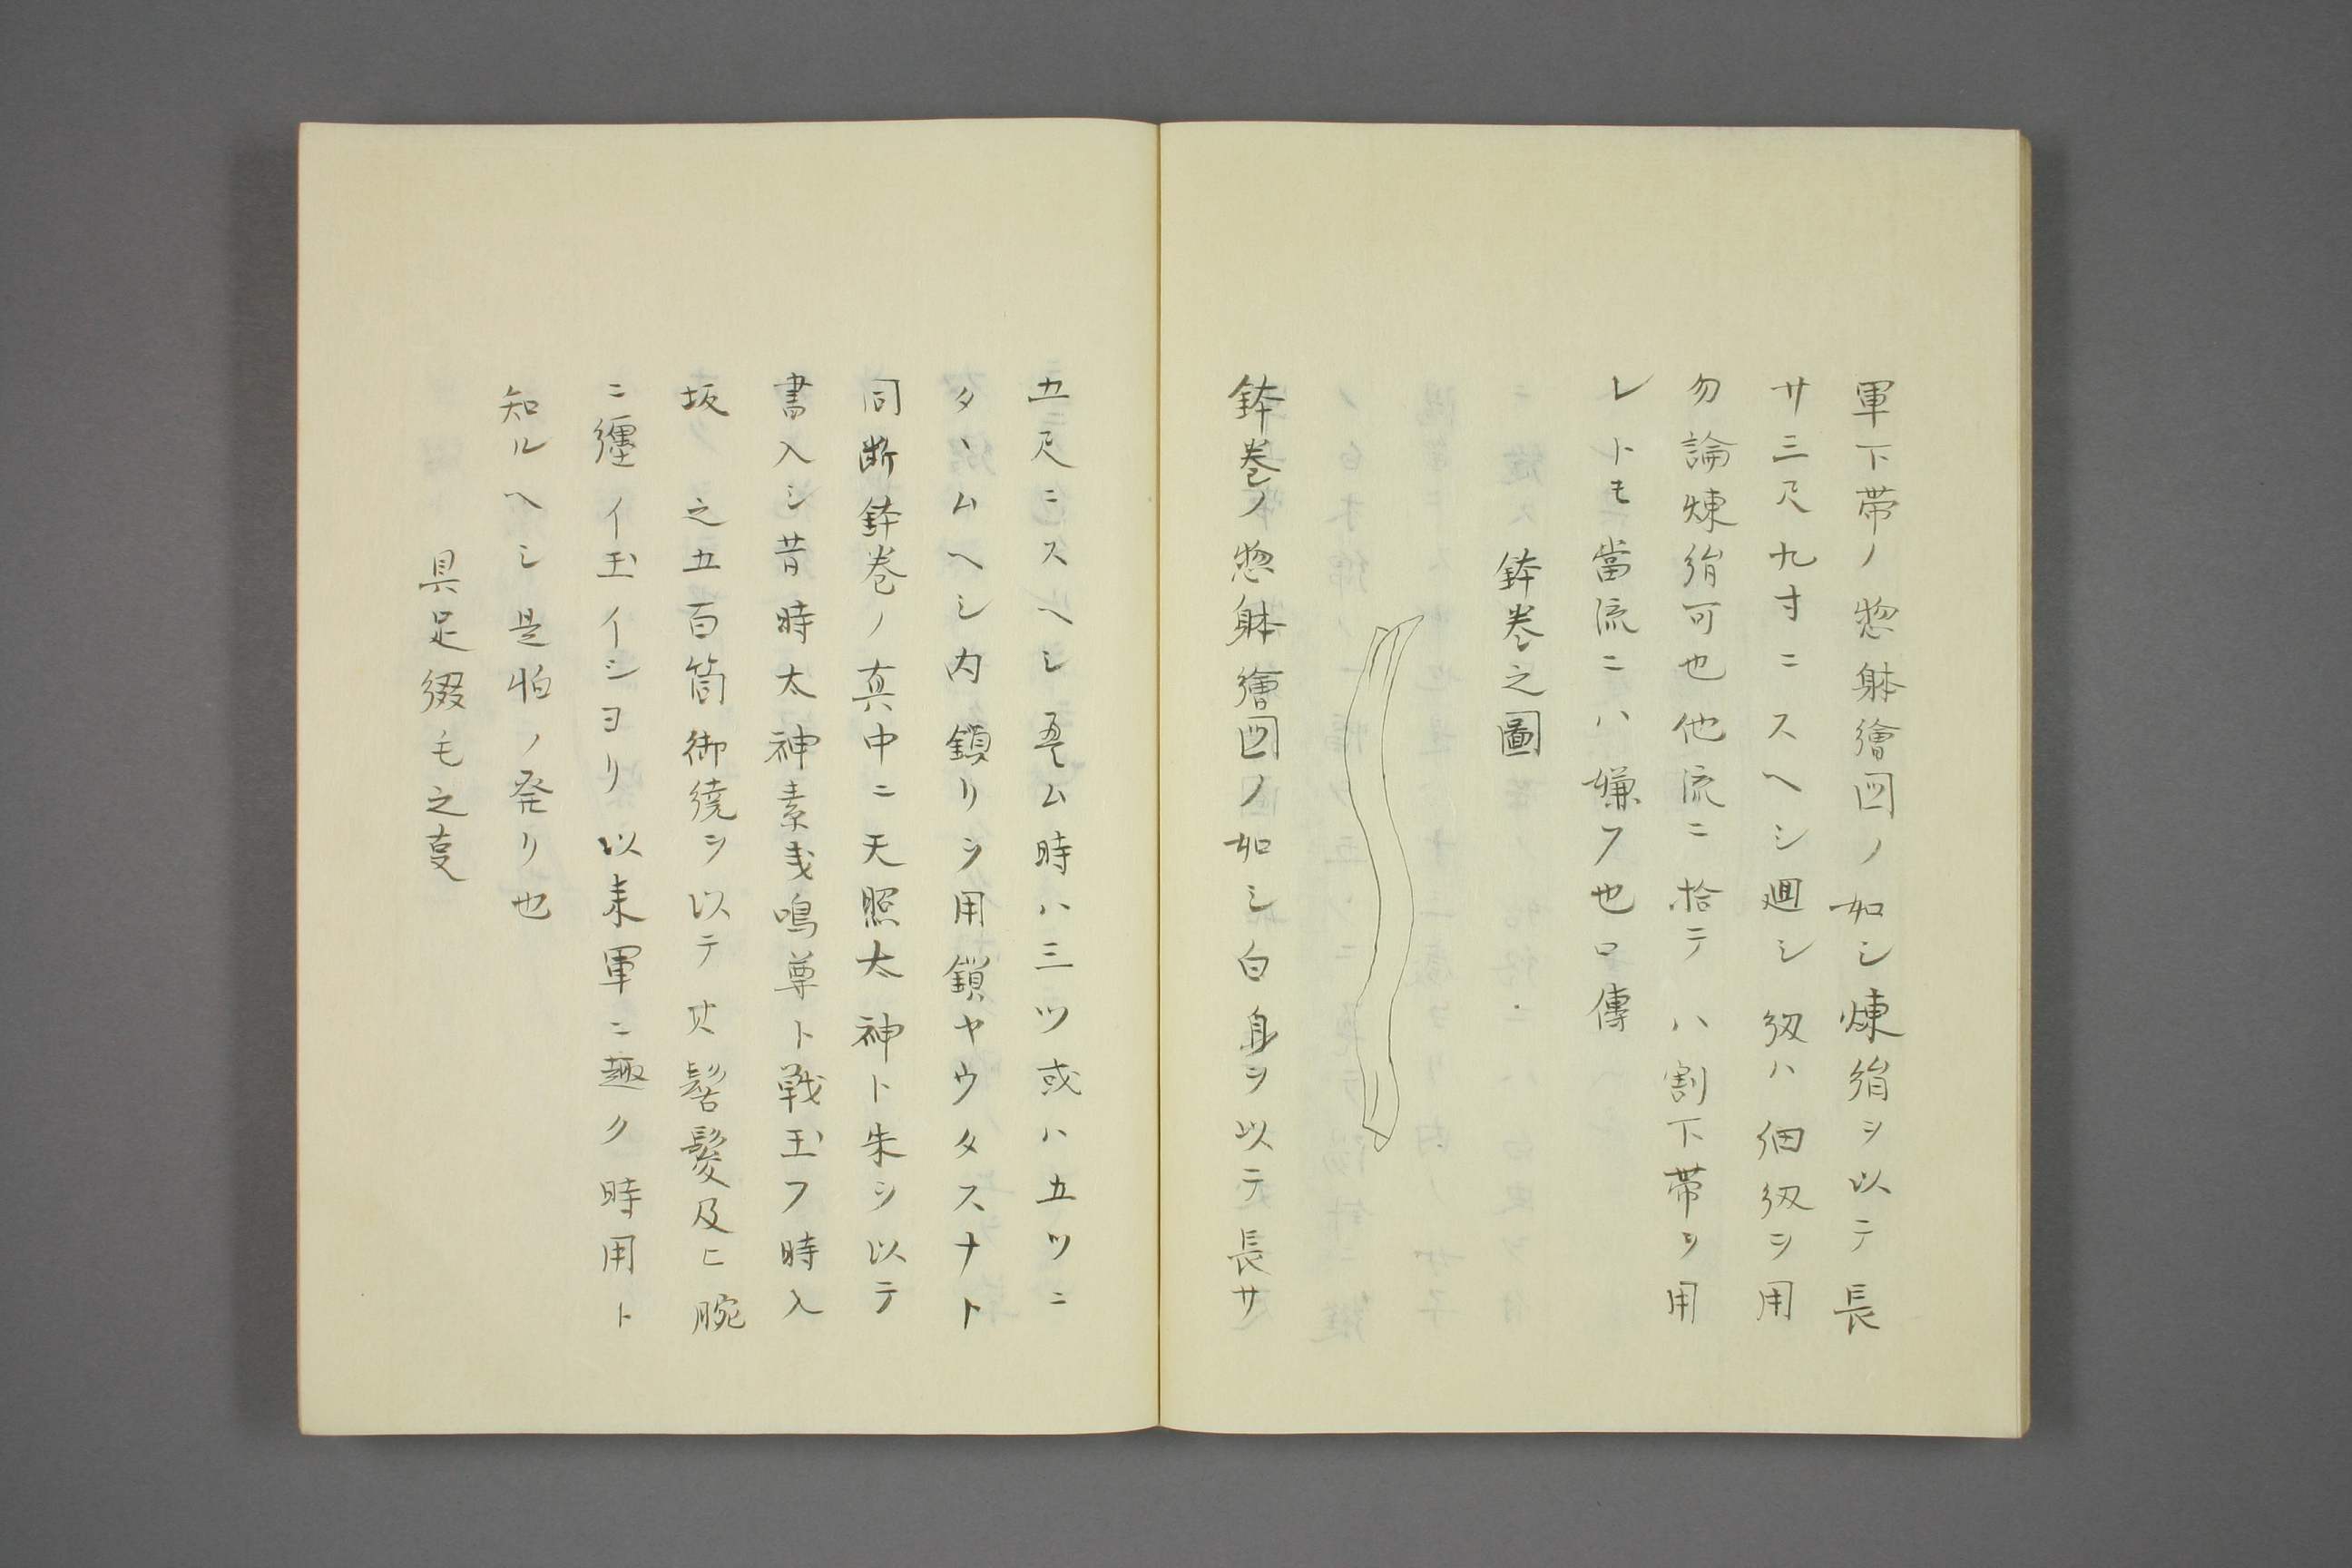 軍下帯ノ惣躰繪図ノ如シ煉絹ヲ以テ長
サ三尺九寸ニスヘシ廻シ級ハ細級ヲ用
勿論煉絹可也他流ニ拾テハ割下帯ヲ用
レトモ當流ニハ嫌フ也口傳
鉢巻之圖
鉢巻ノ惣躰繪図ノ如シ白身ヲ以テ長サ
五尺ニスヘシ畳ム時ハ三ツ或ハ五ツニ
タヽムヘシ内鎖リヲ用鎖ヤウタスナト
同断鉢巻ノ真中ニ天照太神ト朱ヲ以テ
書入シ昔時太神素戔鳴尊ト戦玉フ時入
坂 之五百箇御繞ヲ以テ其髻髪及ヒ腕
ニ纏イ玉イーシヨリ以来軍ニ趣ク時用ト
知ルヘシ是怕ノ発リ也
具足綴毛之㕝